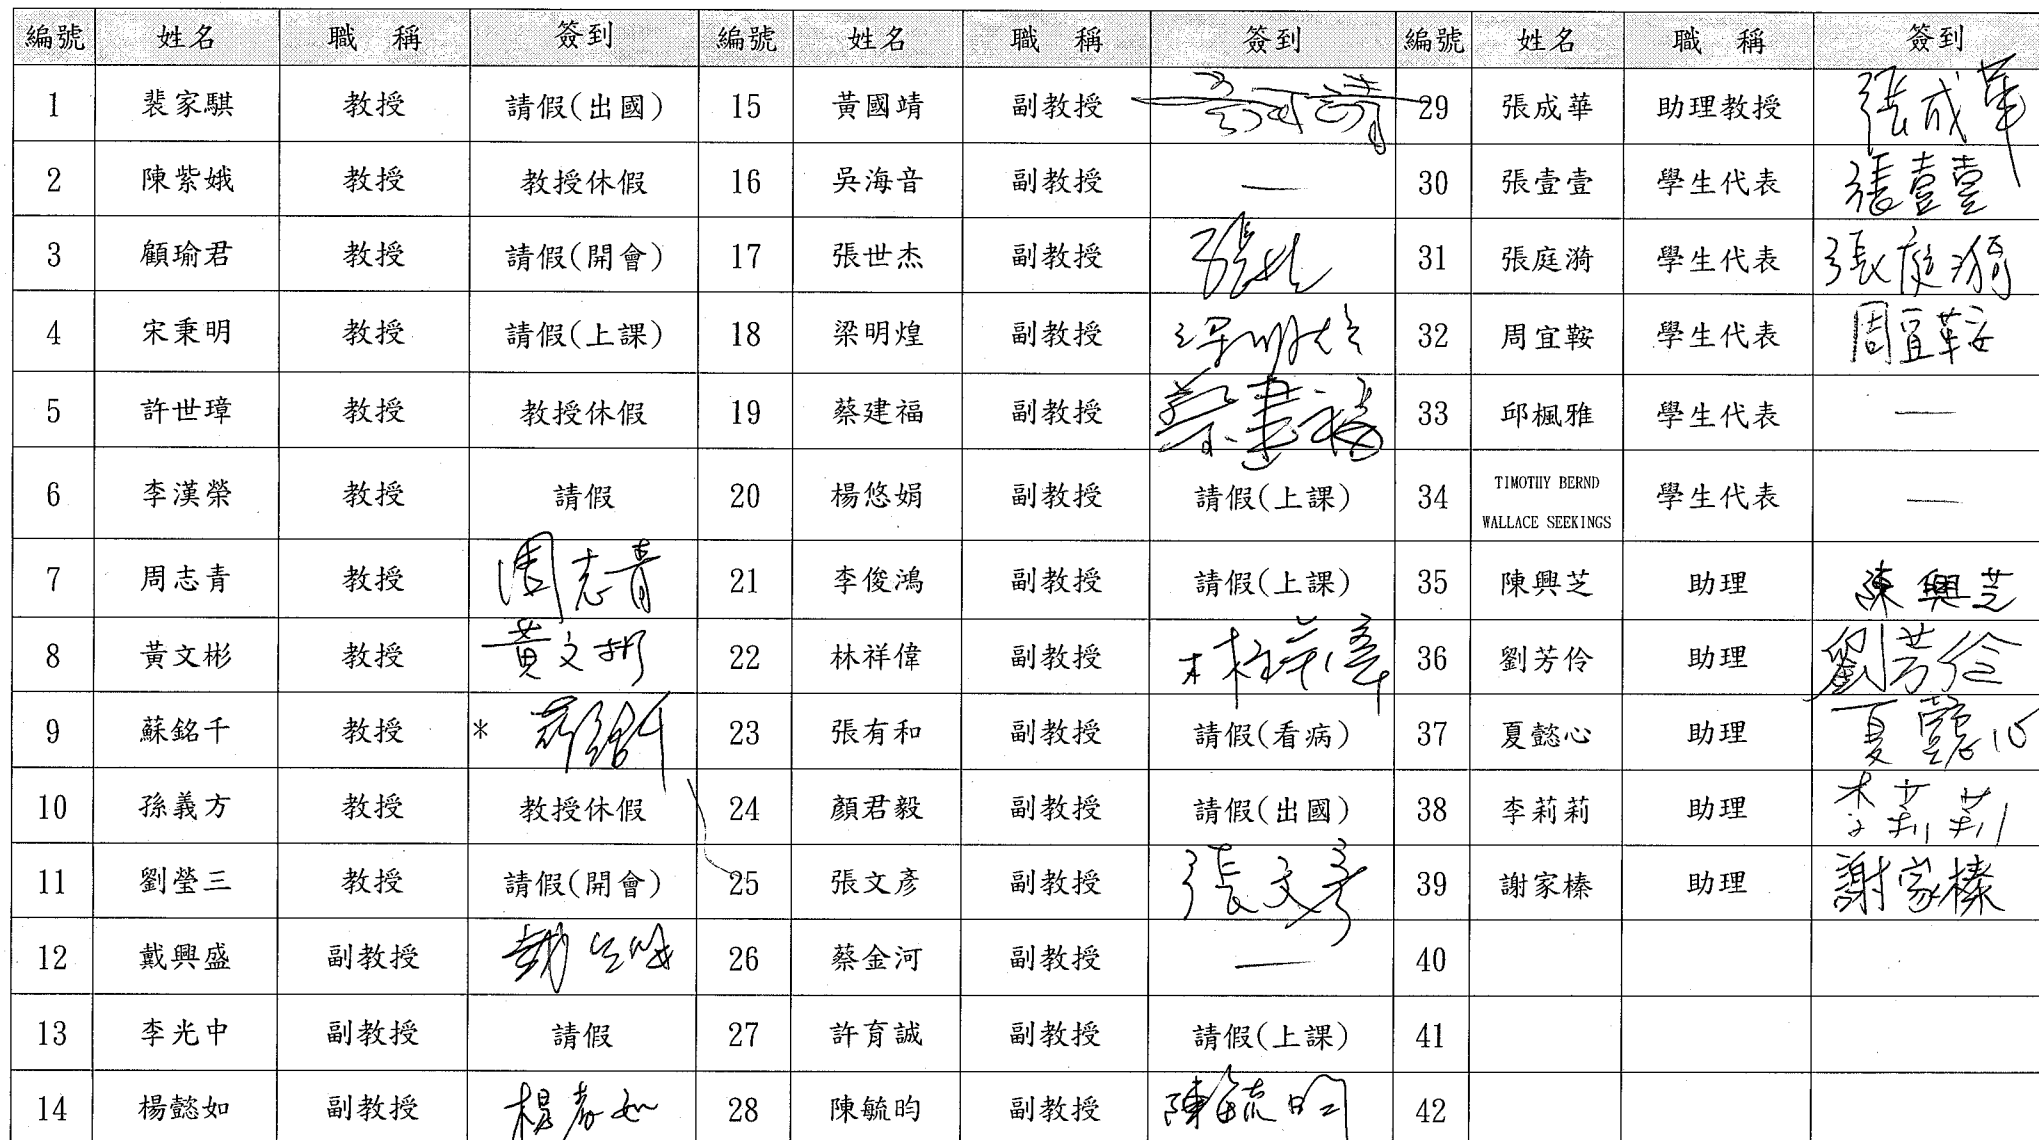 編號 姓名 職 稱 簽到 編號 姓名 職 稱 簽到 編號 姓名 職 稱 簽到
1 裴家騏 教授 請假(出國) 15 黃國靖 副教授 黃國靖 29 張成華 助理教授 張成華
2 陳紫娥 教授 教授休假 16 吳海音 副教授 — 30 張壹壹 學生代表 張壹壹
3 顧瑜君 教授 請假(開會) 17 張世杰 副教授 31 張庭漪 學生代表 張庭漪
4 宋秉明 教授 請假(上課) 18 梁明煌 副教授 梁明煌 32 周宜鞍 學生代表 周宜鞍
5 許世璋 教授 教授休假 19 蔡建福 副教授 蔡建福 33 邱楓雅 學生代表 —
6 李漢榮 教授 請假 20 楊悠娟 副教授 請假(上課) 34 TIMOTHY BERND WALLACE SEEKINGS 學生代表 —
7 周志青 教授 周志青 21 李俊鴻 副教授 請假(上課) 35 陳興芝 助理 陳興芝
8 黃文彬 教授 黃文彬 22 林祥偉 副教授 林祥偉 36 劉芳伶 助理 劉芳伶
9 蘇銘千 教授 * 蘇銘千 23 張有和 副教授 請假(看病) 37 夏懿心 助理 夏懿心
10 孫義方 教授 教授休假 24 顏君毅 副教授 請假(出國) 38 李莉莉 助理 李莉莉
11 劉瑩三 教授 請假(開會) 25 張文彥 副教授 張文彥 39 謝家榛 助理 謝家榛
12 戴興盛 副教授 戴興盛 26 蔡金河 副教授 — 40
13 李光中 副教授 請假 27 許育誠 副教授 請假(上課) 41
14 楊懿如 副教授 楊懿如 28 陳毓昀 副教授 陳毓昀 42